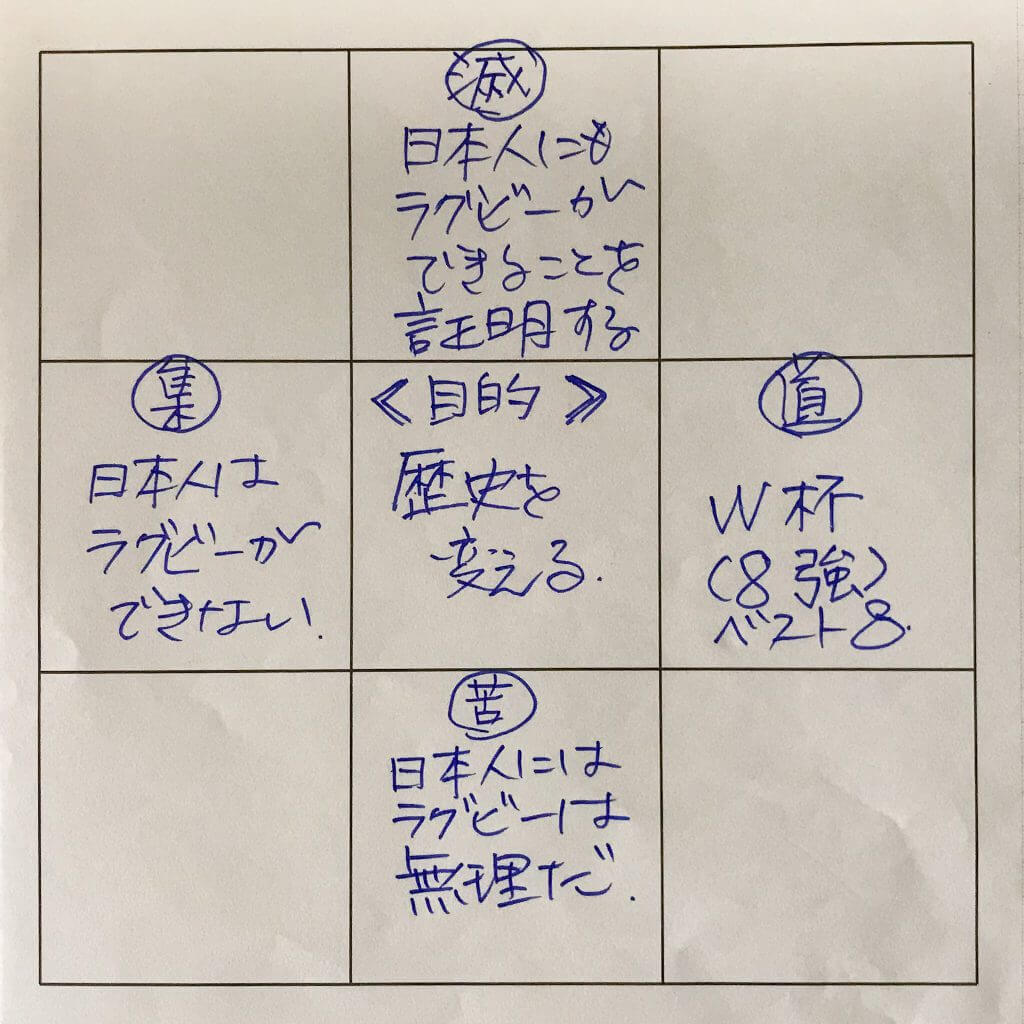 滅
日本人にも
ラグビーが
できることを
証明する
集
日本人は
ラグビーが
できない!
《目的》
歴史を
変える.
道
W杯
(8強)
ベスト8.
苦
日本人には
ラグビーは
無理だ.